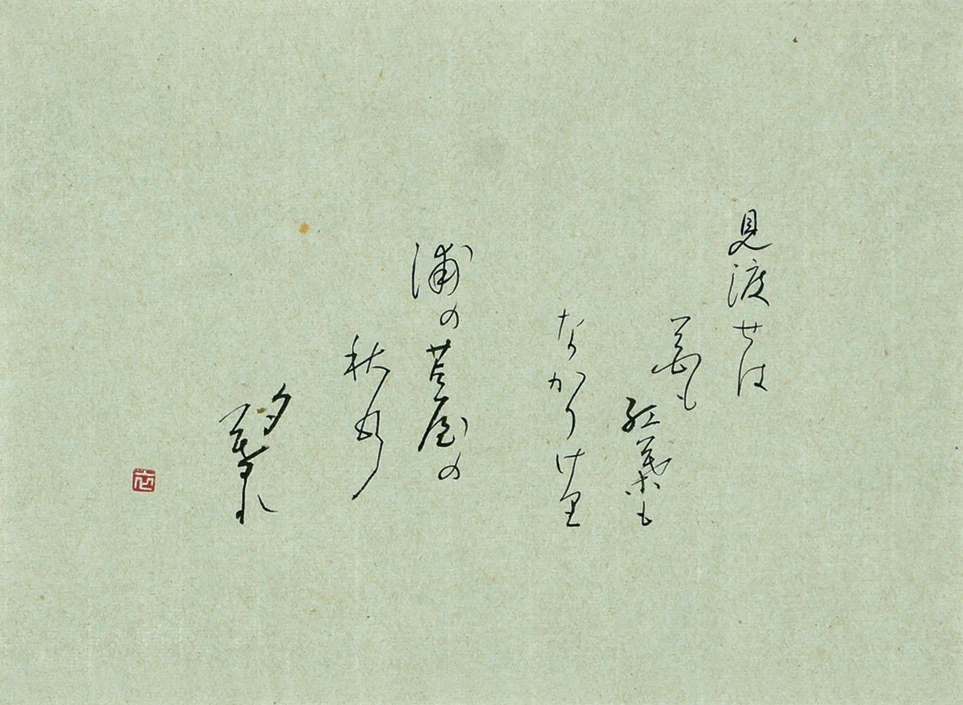 見渡せは
花も
紅葉も
なかりけり
浦の苫屋の
秋乃
夕暮れ